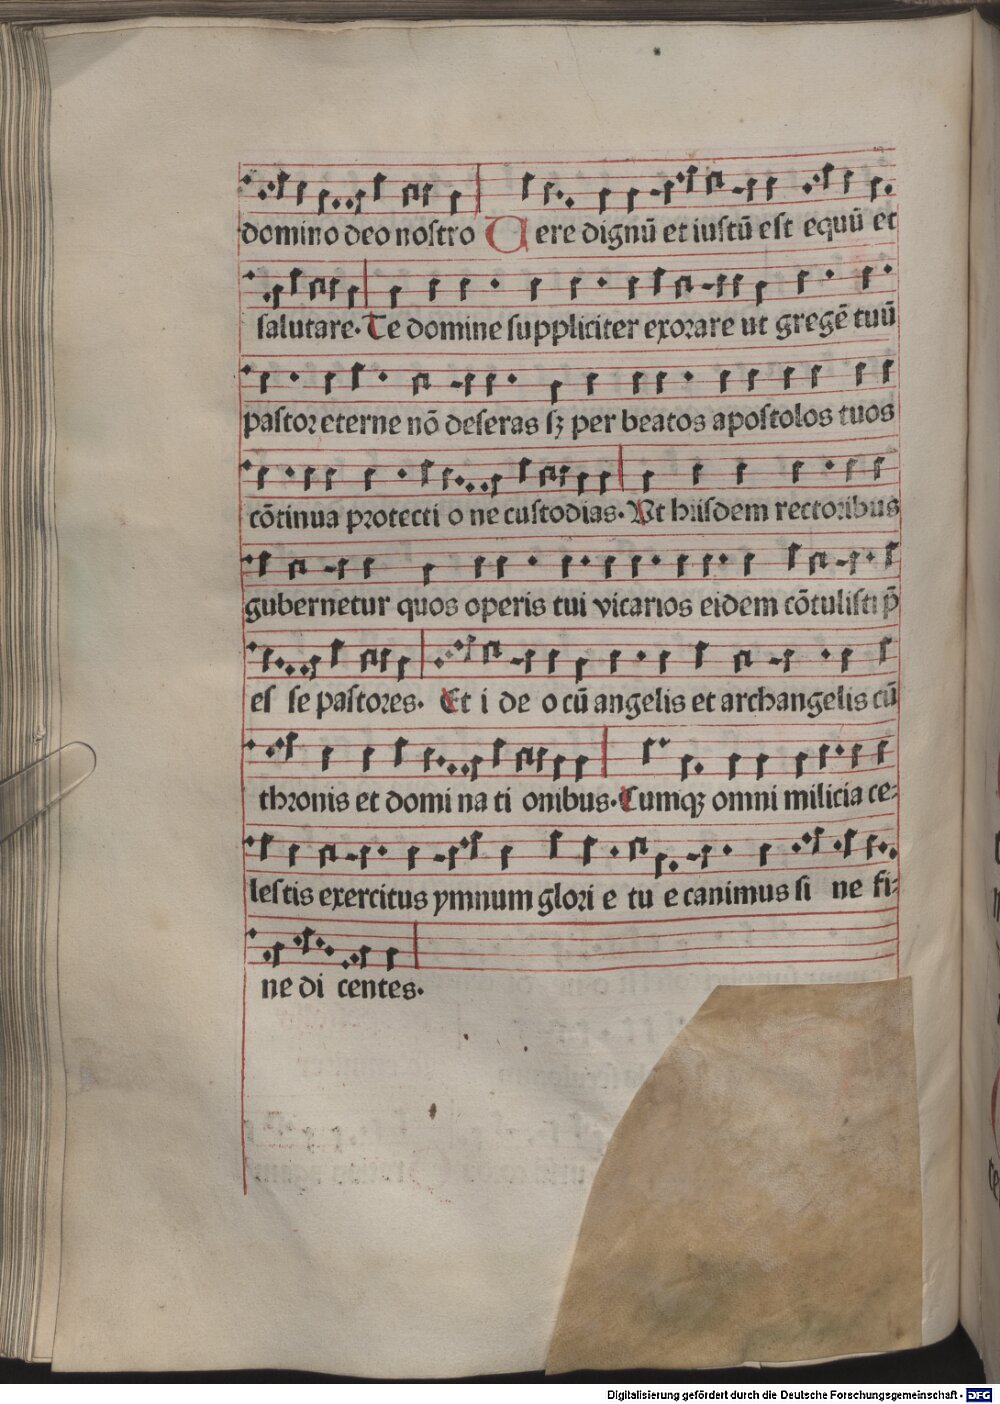 domino deo noſtro Uere dignū et iuſtū eſt equū et
ſalutare· Te domine ſuppliciter exoꝛare ut gregē tuū
paſtoꝛ eterne nō deſeras ſꝫ per beatos apoſtolos tuos
cōtinua pꝛotecti o ne cuſtodias· Vt hiiſdem rectoꝛibus
gubernetur quos operis tui vicarios eidem cōtuliſti p̄
eſ ſe paſtoꝛes· Et i de o cū angelis et archangelis cū
thꝛonis et domi na ti onibus· Cumqꝫ omni milicia ce⸗
leſtis exercitus ymnum gloꝛi e tu e canimus ſi ne fi⸗
ne di centes·
Digitalisierung gefördert durch die Deutsche Forschungsgemeinschaft - DFG